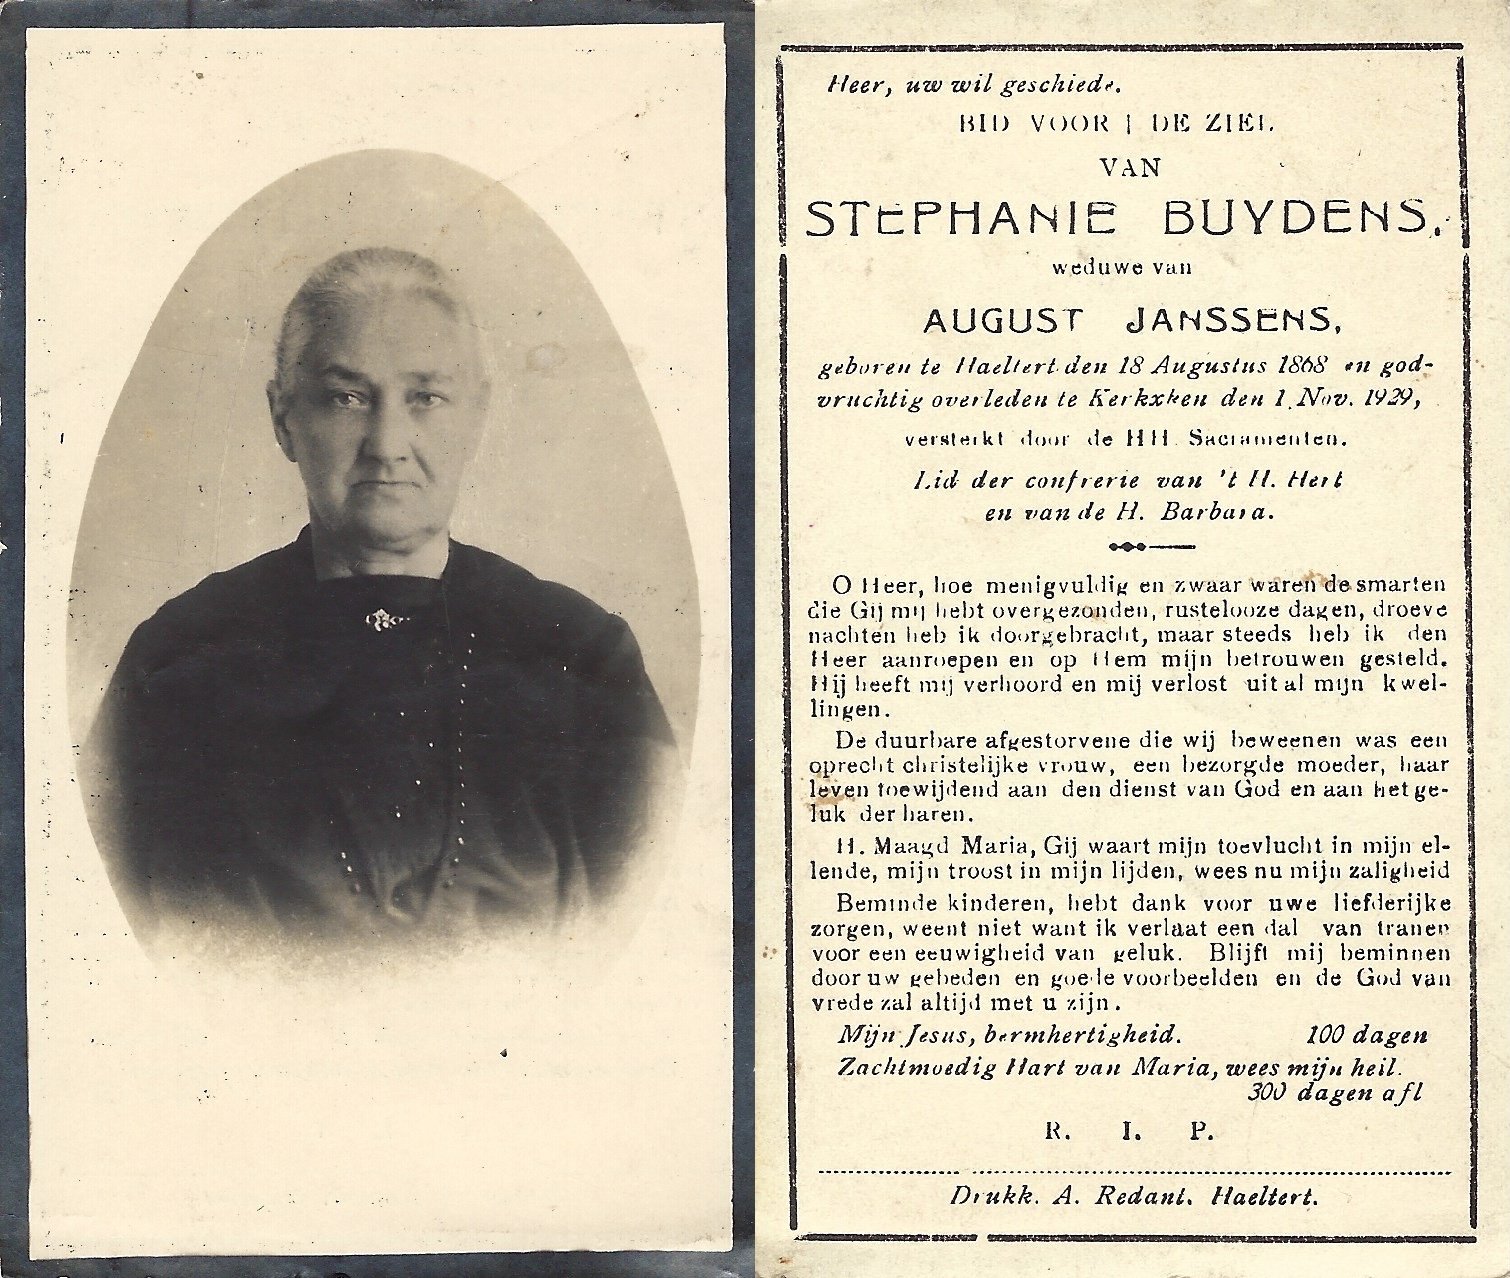 Heer, uw wil geschiede.
BID VOOR DE ZIEL
VAN
STEPHANIE BUYDENS,
weduwe van
AUGUST JANSSENS,
geboren te Haeltert den 18 Augustus 1868 en god-
vruchtig overleden te Kerkxken den 1 Nov. 1929,
versterkt door de HH. Sacramenten.
Lid der confrerie van 't H. Hert
en van de H. Barbara.
O Heer, hoe menigvuldig en zwaar waren de smarten
die Gij mij hebt overgezonden, rustelooze dagen, droeve
nachten heb ik doorgebracht, maar steeds heb ik den
Heer aanroepen en op Hem mijn betrouwen gesteld.
Hij heeft mij verhoord en mij verlost uit al mijn kwel-
lingen.
De duurbare afgestorvene die wij beweenen was een
oprecht christelijke vrouw, een bezorgde moeder, haar
leven toewijdend aan den dienst van God en aan het ge-
luk der haren.
H. Maagd Maria, Gij waart mijn toevlucht in mijn el-
lende, mijn troost in mijn lijden, wees nu mijn zaligheid
Beminde kinderen, hebt dank voor uwe liefderijke
zorgen, weent niet want ik verlaat een dal van tranen
voor een eeuwigheid van geluk. Blijft mij beminnen
door uw gebeden en goede voorbeelden en de God van
vrede zal altijd met u zijn.
Mijn Jesus, bermhertigheid. 100 dagen
Zachtmoedig Hart van Maria, wees mijn heil.
300 dagen afl
R. I. P.
Drukk. A. Redant. Haeltert.